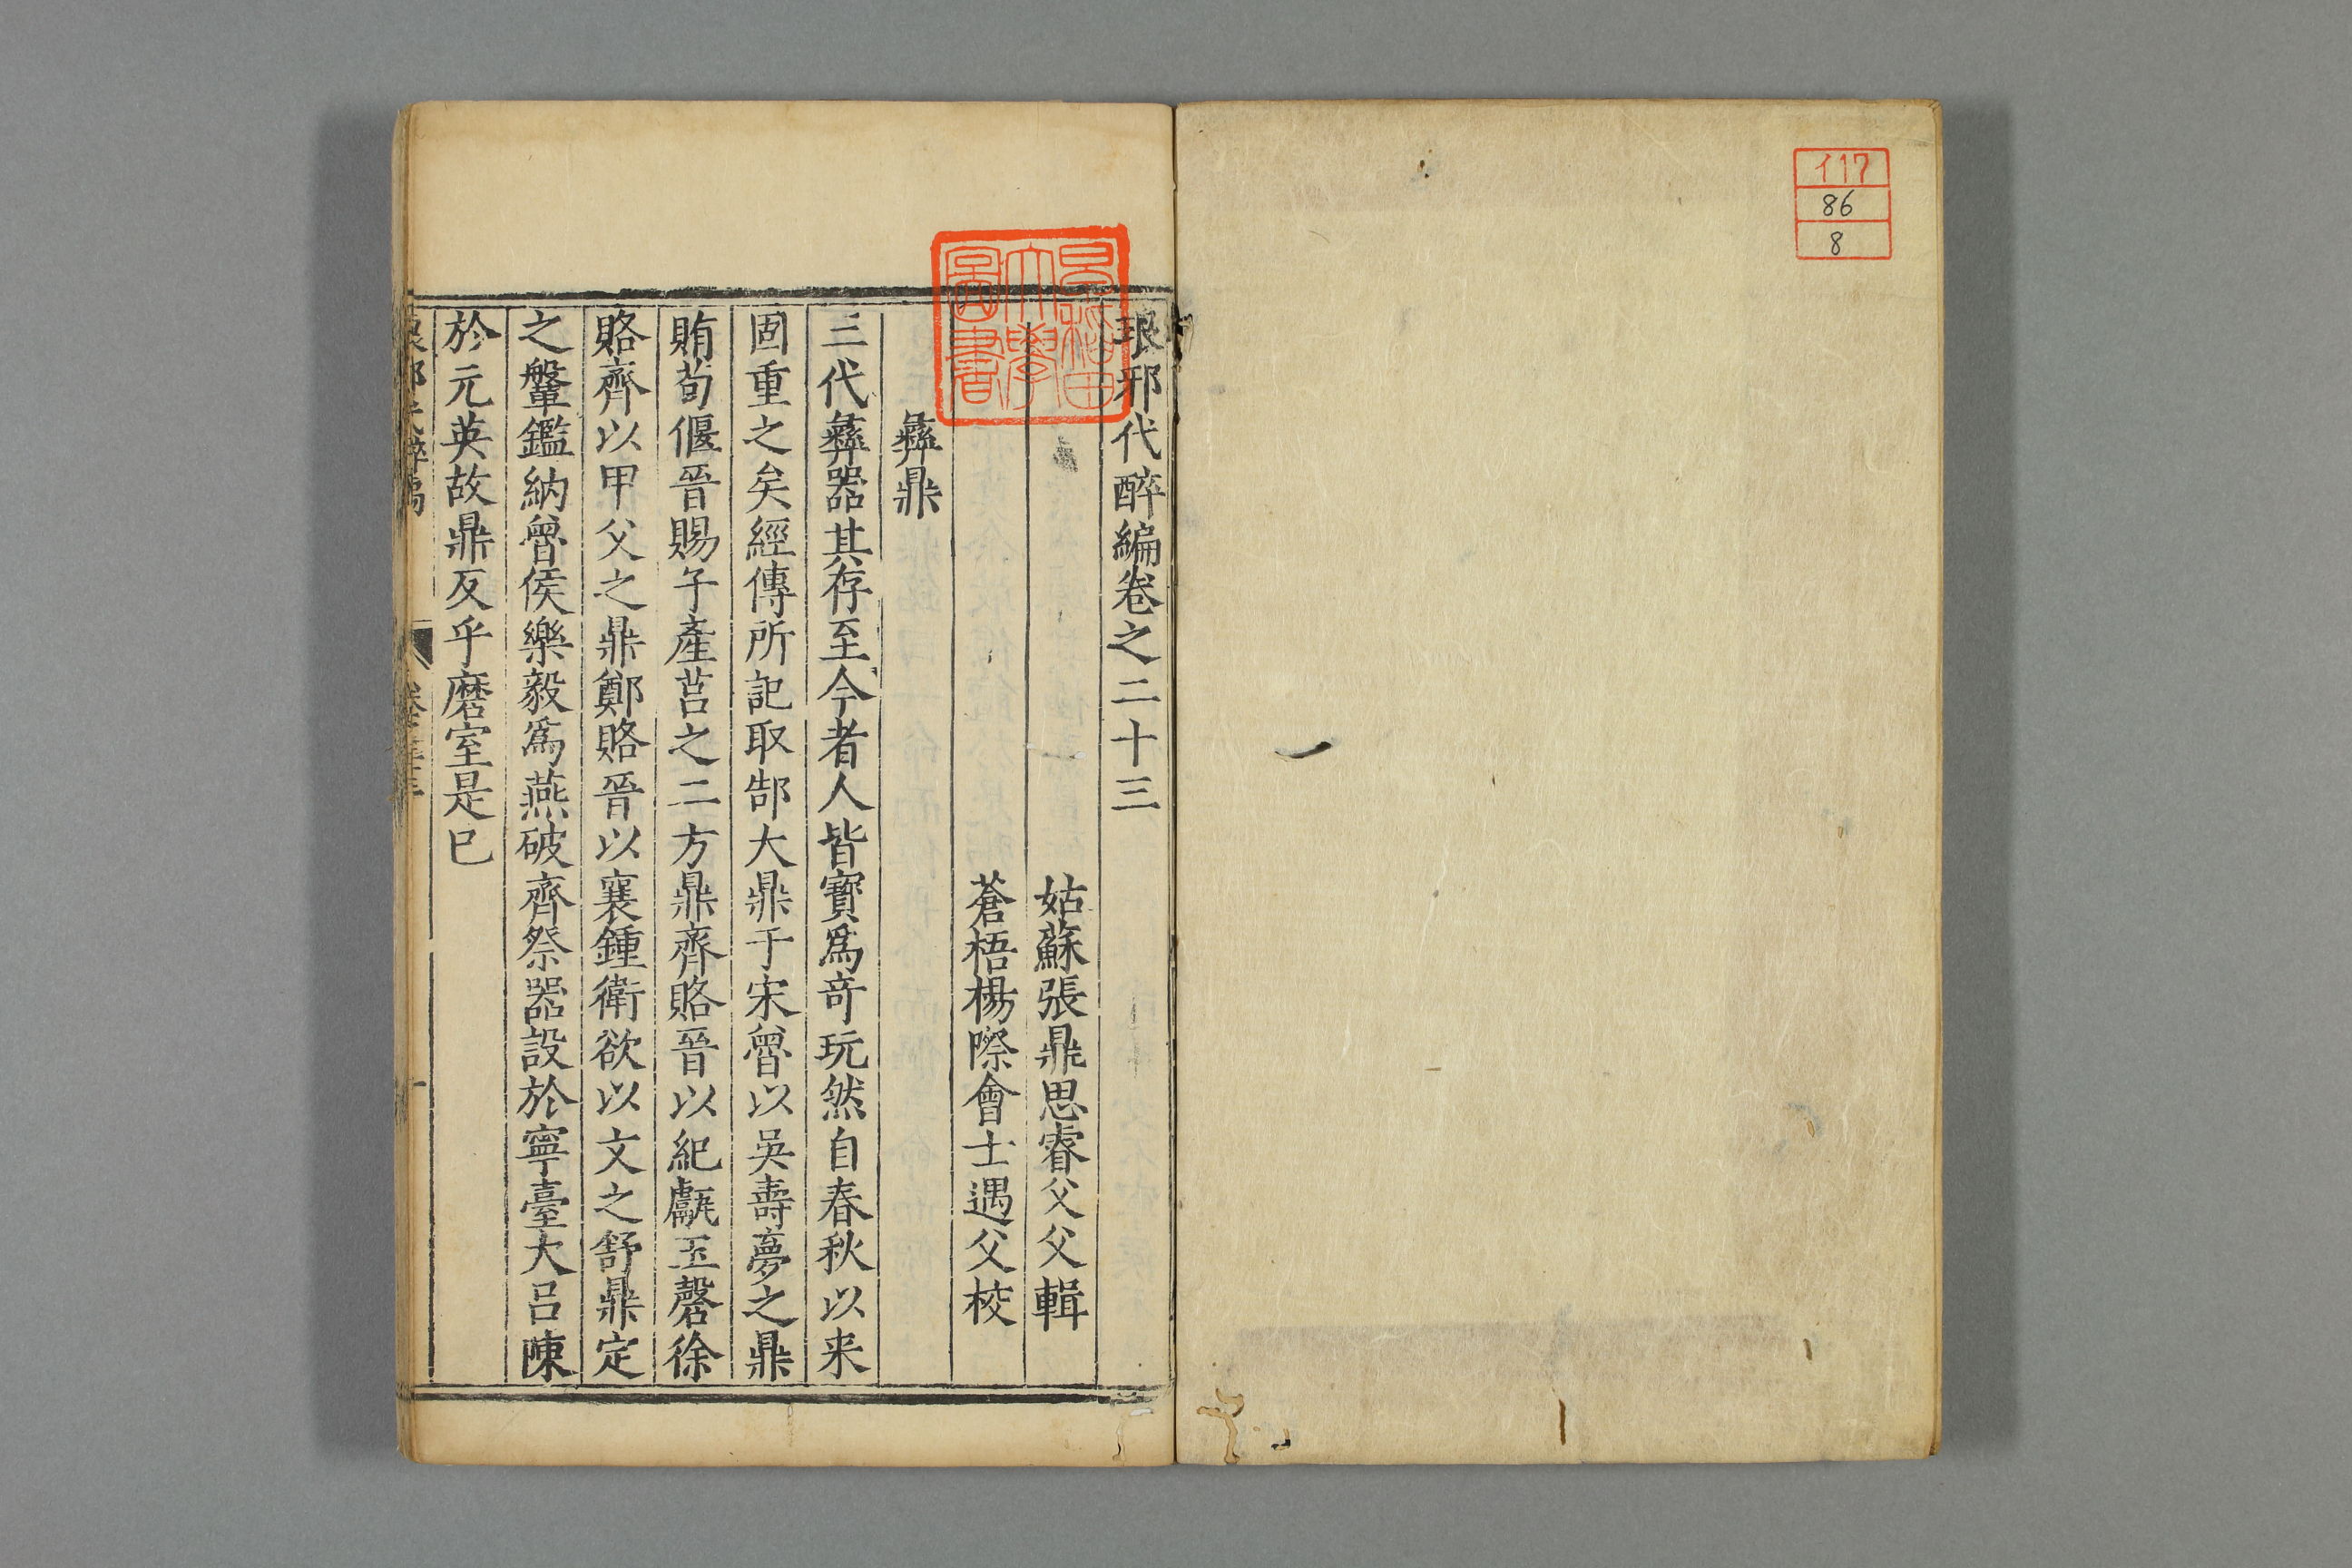 イ17
86
8
早稲田
大學
圖書
琅邪代醉編卷之二十三
姑蘇張鼎思睿父父輯
蒼梧楊際會士遇父校
彝鼎
三代彝器其存至今者人皆寳爲竒玩然自春秋以来
固重之矣經傳所記取郜大鼎于宋魯以吳壽夢之鼎
賄荀偃晉賜子產莒之二方鼎齊賂晉以紀甗玉磬徐
賂齊以甲父之鼎鄭賂晉以襄鍾衛欲以文之舒鼎定
之鞶鑑納魯侯樂毅爲燕破齊祭器設於寧臺大吕陳
於元英故鼎反乎磨室是已